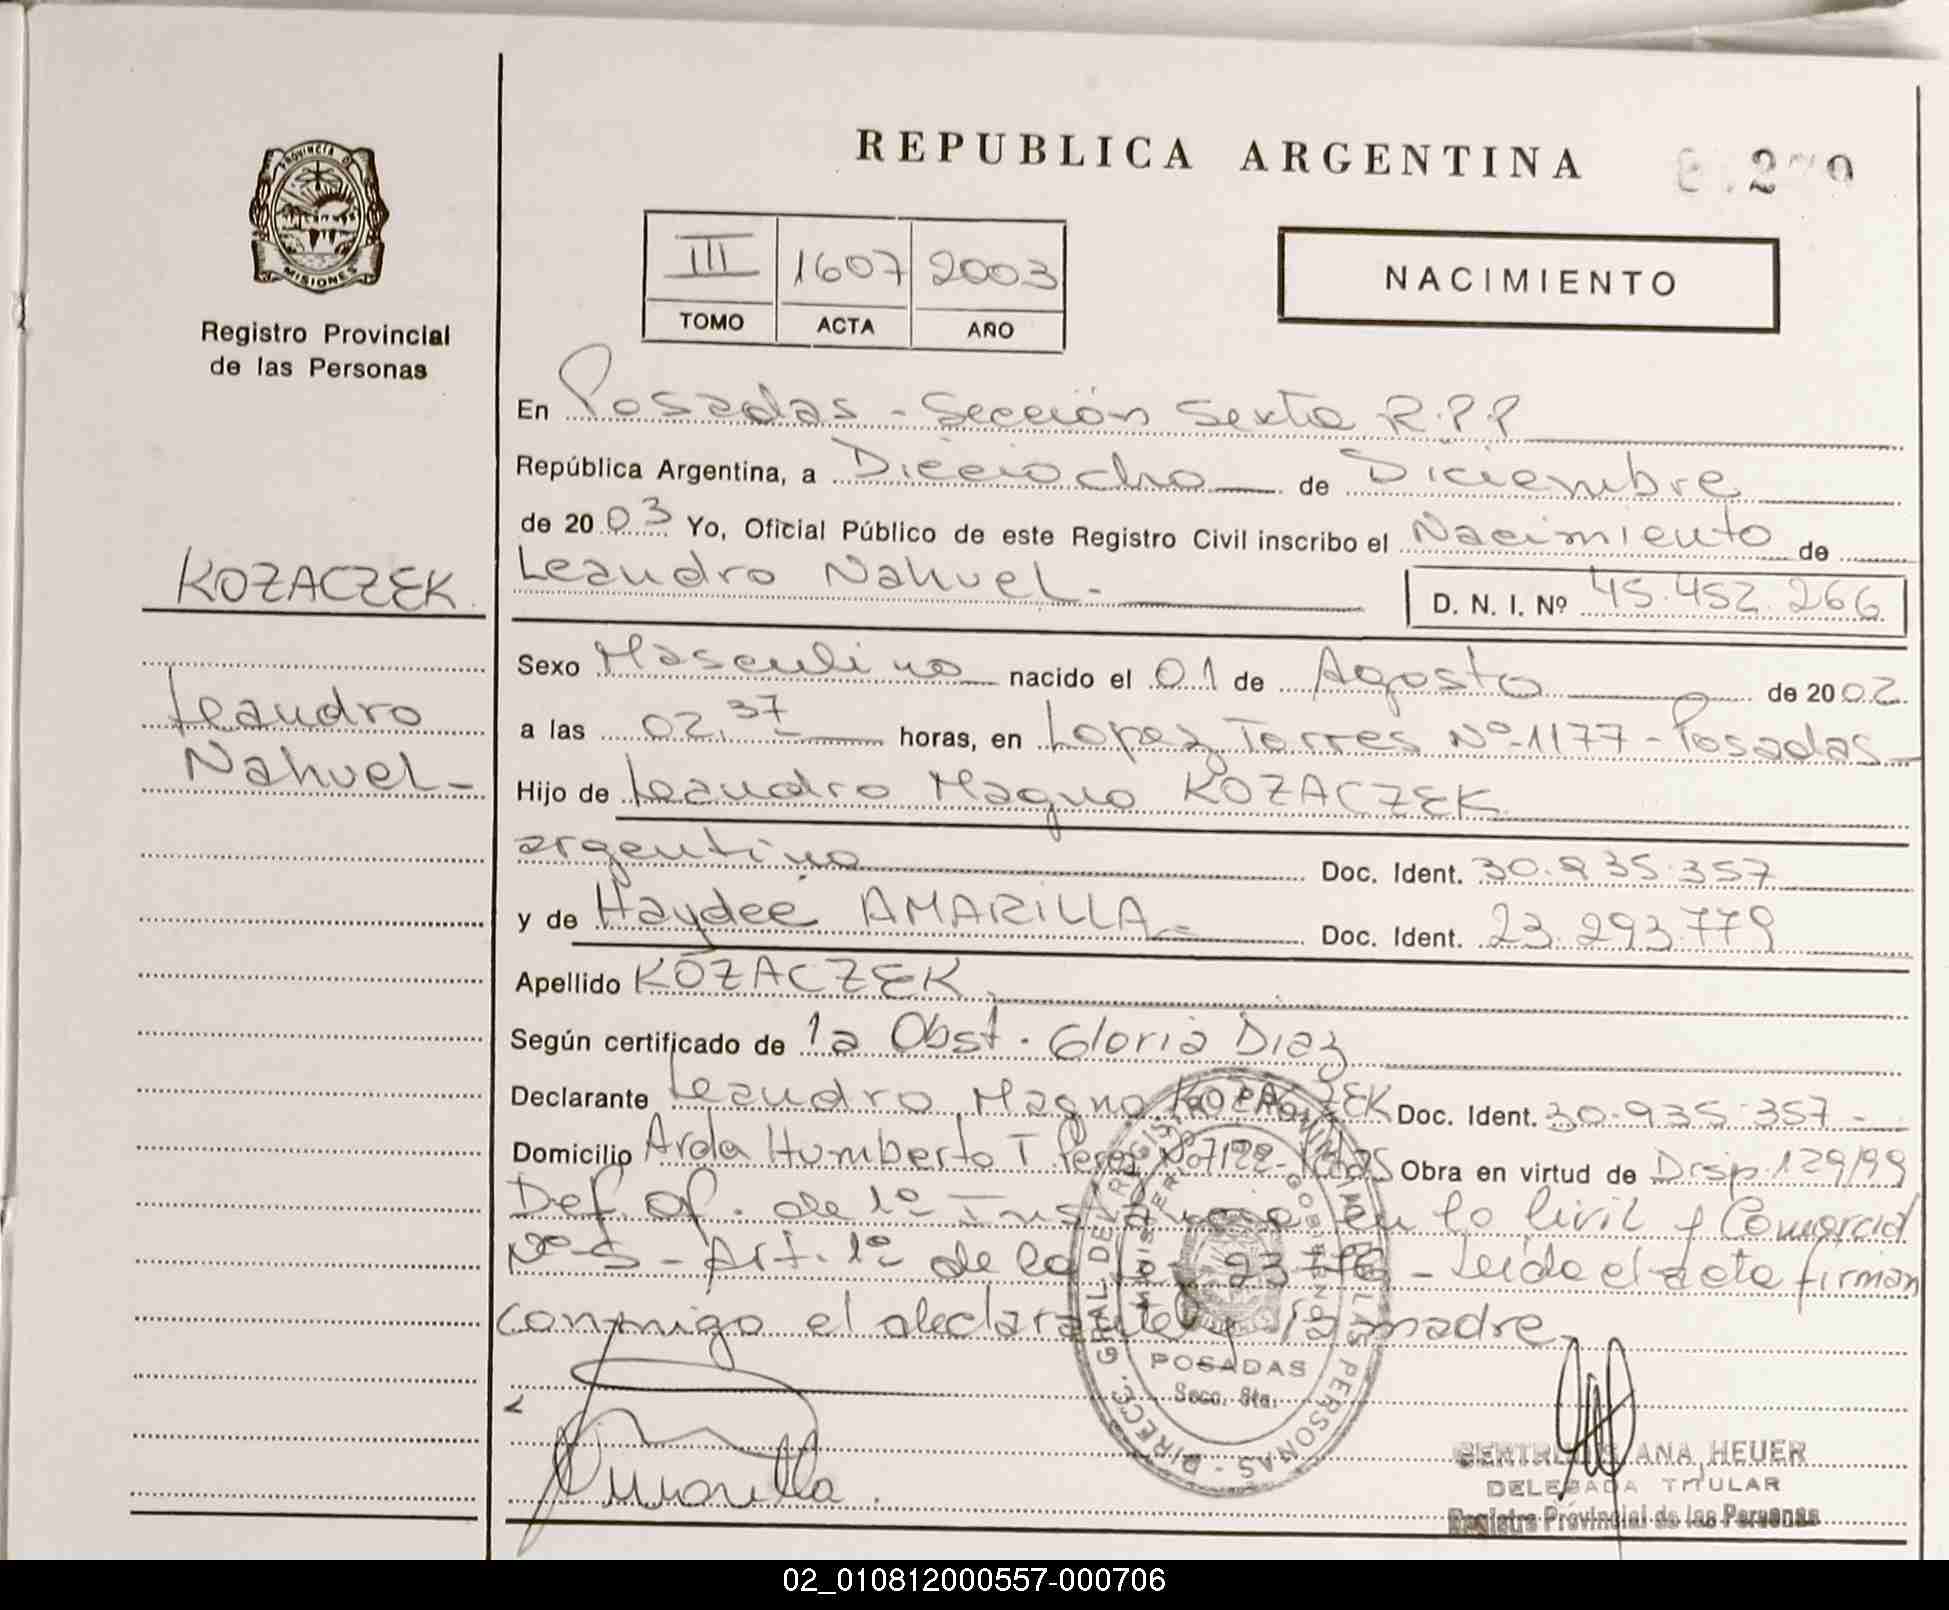 REPUBLICA ARGENTINA
PROVINCIA D
MISIONES
Registro Provincial
de las Personas
III 1607 2003
TOMO ACTA AÑO
NACIMIENTO
En Posadas - Sección Sexta R.P.P
República Argentina, a Dieciocho de Diciembre
de 2003 Yo, Oficial Público de este Registro Civil inscribo el Nacimiento de
Leandro Nahuel.-
D. N. I. Nº 45.452.266
KOZACZEK
Leandro
Nahuel-
Sexo Masculino nacido el 01 de Agosto de 2002
a las 02.37 horas, en Lopez Torres Nº-1177-Posadas-
Hijo de Leandro Magno KOZACZEK
argentino Doc. Ident. 30.935.357
y de Haydeé AMARILLA Doc. Ident. 23.293.779
Apellido KOZACZEK
Según certificado de la Obst. Gloria Diaz
Declarante Leandro Magno KOZACZEK Doc. Ident. 30.935.357-
Domicilio Avda Humberto T Perez Nº7122- Pdas Obra en virtud de Disp.129/99
Def. Of. de 1º Instancia en lo Civil y Comercial
Nº-5 - Art. 1º de la Ley 23.776 - Leída el acta firman
conmigo el declarante y la madre
DIRECC. GRAL DEL REGISTRO PROVINCIAL DE LAS PERSONAS
POSADAS
Secc. 6ta.
Amarilla
ANA HEUER
DELEGADA TITULAR
Registro Provincial de las Personas
02_010812000557-000706